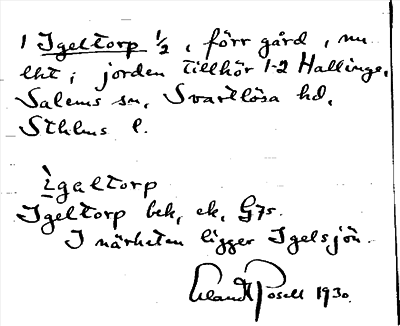 1 Igeltorp 1/2, förr gård, nu
lht; jorden tillhör 1-2 Hallinge,
Salems sn, Svartlösa hd,
Sthlms l.
ìgaltorp
Igeltorp bek, ek, G7s.
I närheten ligger Igelsjön.
Rosell 1930.